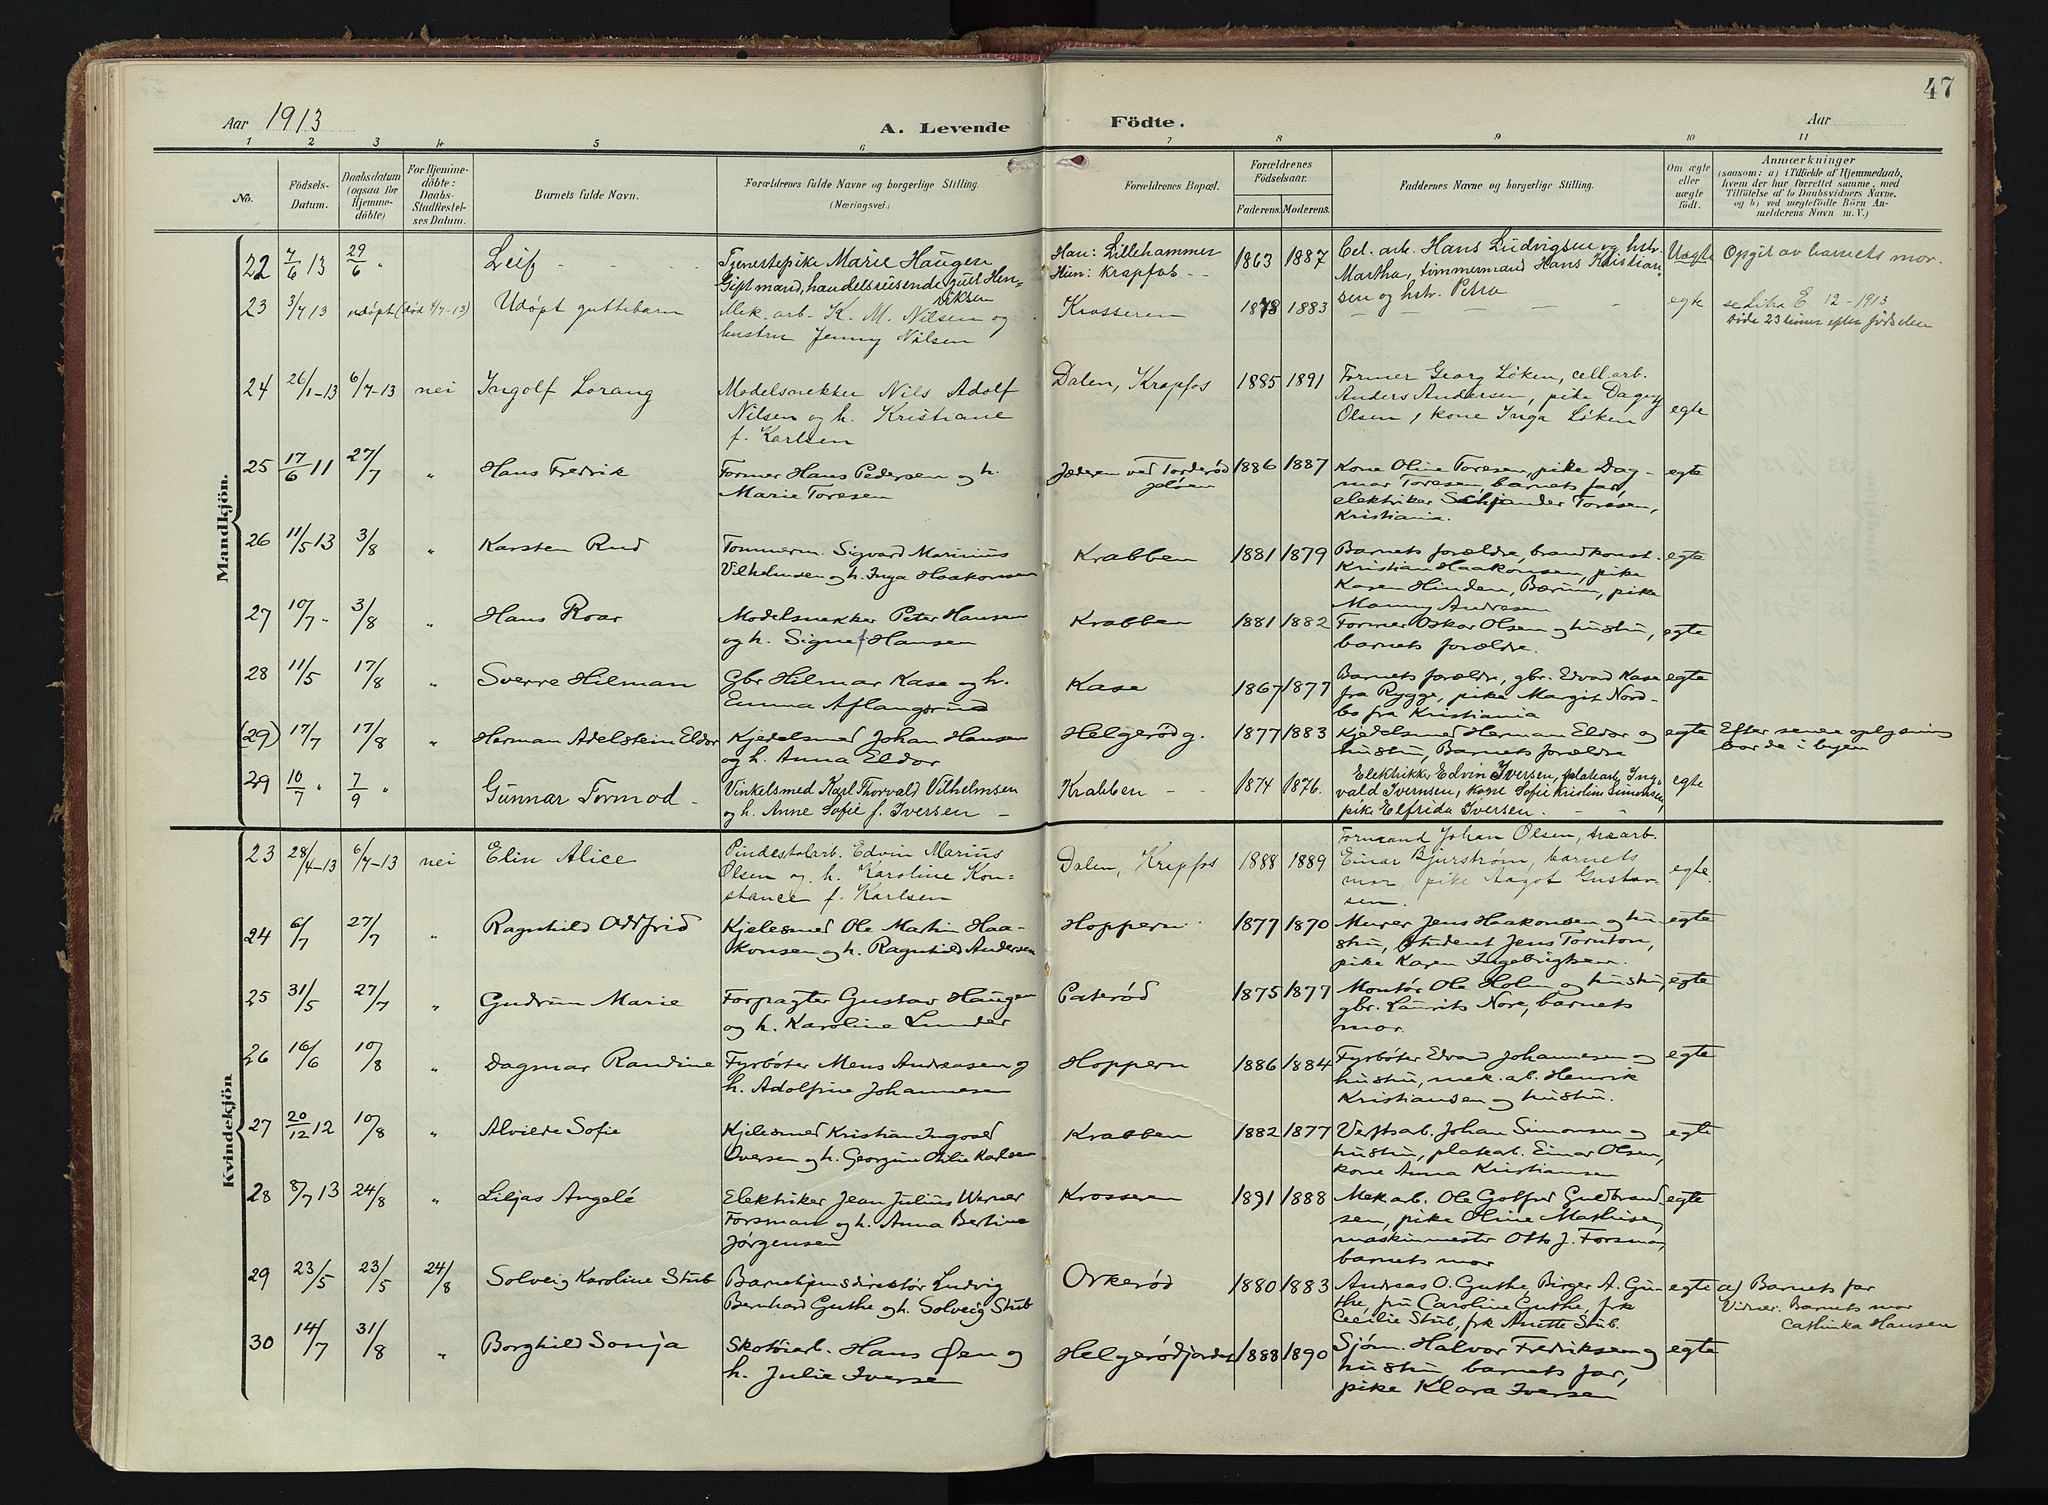 47
Aar 1913
A. Levende Födte.
Aar
1 2 3 4 5 6 7 8 9 10 11
No.
Födsels-Datum.
Daabsdatum (ogsaa for Hjemmedöbte)
For Hjemmedöbte: Daabs-Stadfæstelses Datum.
Barnets fulde Navn.
Forældrenes fulde Navne og borgerlige Stilling. (Næringsvei.)
Forældrenes Bopæl.
Forældrenes Födselsaar.
Faderens. Moderens.
Faddernes Navne og borgerlige Stilling.
Om ægte eller uægte født.
Anmærkninger
(saasom: a) i Tilfælde af Hjemmedaab, hvem der har forrettet samme, med Tilföielse af to Daabsvidners Navne. og b) ved uægtefødte Börn Anmelderens Navn m. V.)
Mandkjön.
22 7/6 13 29/6 " Leif - - - - Tjenestepike Marie Haugen Han: Lillehammer 1863 1887 Cel. arb. Hans Ludvigsen og hstr. Uægte Opgit av barnets mor.
Gift mand, handelsreisende Hen- Hun: Krapfos - - Martha, timmermand Hans Kristian-
riksen sen og hstr. Petra
23 3/7 13 udøpt (død 4/7-13) Udøpt guttebarn Mek. arb. K. M. Nilsen og Krosseren 1878 1883 - - - - egte se Litra E 12-1913
hustru Jenny Nilsen Døde 23 timer efter fødselen
24 26/1-13 6/7-13 nei Ingolf Lorang Modelsnekker Nils Adolf Dalen, Krapfos 1885 1891 Former Georg Løken, cell. arb.
Nilsen og h. Kristiane Anders Andersen, pike Dagny
f. Karlsen Olsen, kone Inga Løken egte
25 17/6 11 27/7 " Hans Fredrik Former Hans Pedersen og h. Jæderen ved Torderød 1886 1887 Kone Oline Toresen, pike Dag- egte
Marie Toresen Jeløen mar Toresen, barnets far,
elektriker Toresen,
Kristiania.
26 11/5 13 3/8 " Karsten Rud Tommerm. Sigvard Marinius Krabben 1881 1879 Barnets forældre, brandkonst. egte
Vilhelmsen og h. Inga Haakonsen Kristian Haakonsen, pike
Karen Hinden, Bærum, pike
Manny Andresen
27 10/7 " 3/8 " Hans Roar Modelsnekker Peter Hansen Krabben 1881 1882 Former Oskar Olsen og hustru, egte
og h. Signe f Hansen barnets forældre.
28 11/5 17/8 " Sverre Hilman Gbr Hilmar Kase og h. Kase 1867 1877 Barnets forældre, gbr. Edvard Kase egte
Emma Aflangsrud fra Rygge, pike Margit Nord-
bo fra Kristiania
(29) 17/7 17/8 " Herman Adelstein Eldor Kjedelsmed Johan Hansen Helgerød g. 1877 1883 Kjedelsmed Herman Eldor og egte Efter senere oplysning
og h. Anna Eldor hustru, Barnets forældre borde i byen
29 10/7 " 7/9 " Gunnar Tormod - Vinkelsmed Karl Thorvald Vilhelmsen Krabben - - 1874 1876. Elektrikker Edvin Iversen, platearb. Ing- egte
og h. Anne Sofie f. Iversen - vald Iversen, kone Sofie Kristine Simonsen,
pike Elfrida Iversen. -
Kvindekjön
23 28/4-13 6/7-13 nei Elin Alice Pindestolarb. Edvin Marius Dalen, Krapfos 1888 1889 Formand Johan Olsen, træarb.
Olsen og h. Karoline Kon- Einar Bjurstrøm, barnets egte.
stance f. Karlsen mor, pike Aagot Gustav-
sen.
24 6/7 27/7 " Ragnhild Oddfrid Kjelesmed Ole Martin Haa- Hoppern 1877 1870 Murer Jens Haakonsen og hu- egte
konsen og h. Ragnhild Andersen stru, student Jens Tornton,
pike Karen Ingebrigtsen.
25 31/5 27/7 " Gudrun Marie Forpagter Gustav Haugen Paterød 1875 1877 Montør Ole Holm og hustru, egte
og h. Karoline Lunder gbr. Laurits Nore, barnets
mor.
26 16/6 10/8 " Dagmar Randine Fyrbøter Mens Andreasen og Hoppern 1886 1884 Fyrbøter Edvard Johannesen og egte
h. Adolfine Johannesen hustru, mek. ab. Henrik
Kristiansen og hustru.
27 20/12 12 10/8 " Alvilde Sofie Kjelesmed Kristian Ingvald Krabben 1882 1877 Verftsab. Johan Simonsen og egte
Iversen og h. Georgine Otilie Karlsen hustru, plateab. Einar Olsen,
kone Anna Kristiansen
28 8/7 13 24/8 " Liljas Angelé Elektriker Jean Julius Werner Krosseren 1891 1888 Mek ab. Ole Gotfred Guldbrand- egte
Forsman og h. Anna Bertine sen, pike Oline Mathisen,
Jørgensen maskinmester Otto J. Forsman,
barnets mor
29 23/5 23/5 24/8 Solveig Karoline Stub Barnehjemsdirektør Ludvig Orkerød 1880 1883 Andreas O. Guthe, Birger A. Gu- egte a) Barnets far
Bernhard Guthe og h. Solveig Stub the, fru Caroline Guthe, frk Vidner. Barnets mor
Cecilie Stub, frk Anette Stub. Cathinka Hansen
30 14/7 31/8 " Borghild Sonja Skotøiarb. Hans Øen og Helgerødjordet 1888 1890 Sjøm. Halvor Fredriksen og egte
h. Julie Iversen hustru, barnets far,
pike Klara Iversen